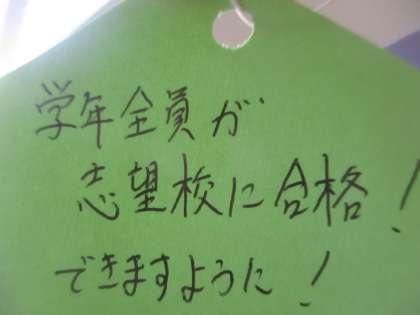 学年全員が
志望校に合格！
できますように！